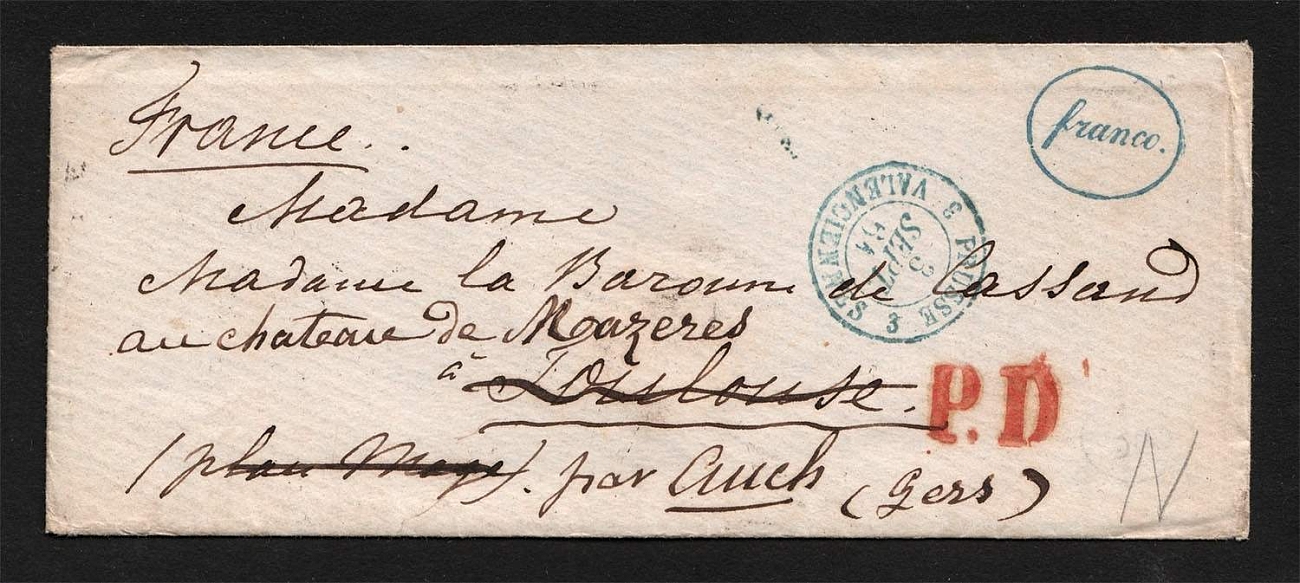 franco.
France..
Madame
3 PRUSSE 3 VALENCIENNES
3 SEPT 64
Madame la Baronne de Lassand
au chateau de Mazeres
à Toulouse.
P.D
(plan Meye). par Auch (Gers)
N